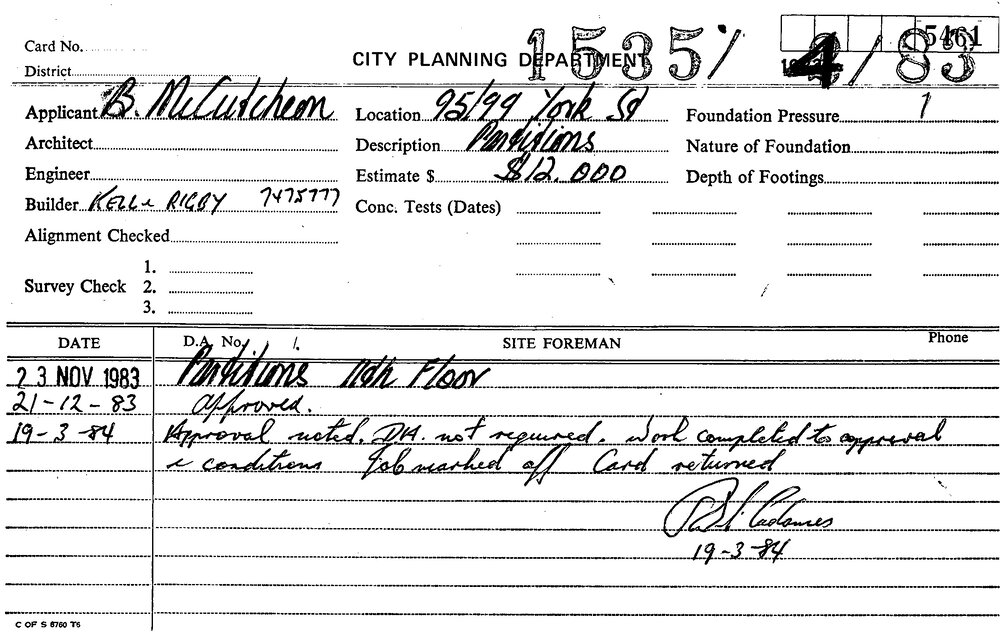 Card No.
CITY PLANNING DEPARTMENT
1535/ 4/83
5461
District
Applicant B. McCutcheon
Location 95/99 York St
Foundation Pressure
Architect
Description Partitions
Nature of Foundation
Engineer
Estimate $ $12.000
Depth of Footings
Builder KELL & RIGBY 7475777
Conc. Tests (Dates)
Alignment Checked
Survey Check
1.
2.
3.
DATE
D.A. No.
SITE FOREMAN
Phone
23 NOV 1983 Partitions 11th Floor
21-12-83 approved.
19-3-84 Approval noted. DA. not required. Work completed to approval
& conditions Job marked off Card returned
19-3-84
C OF S 6760 T6